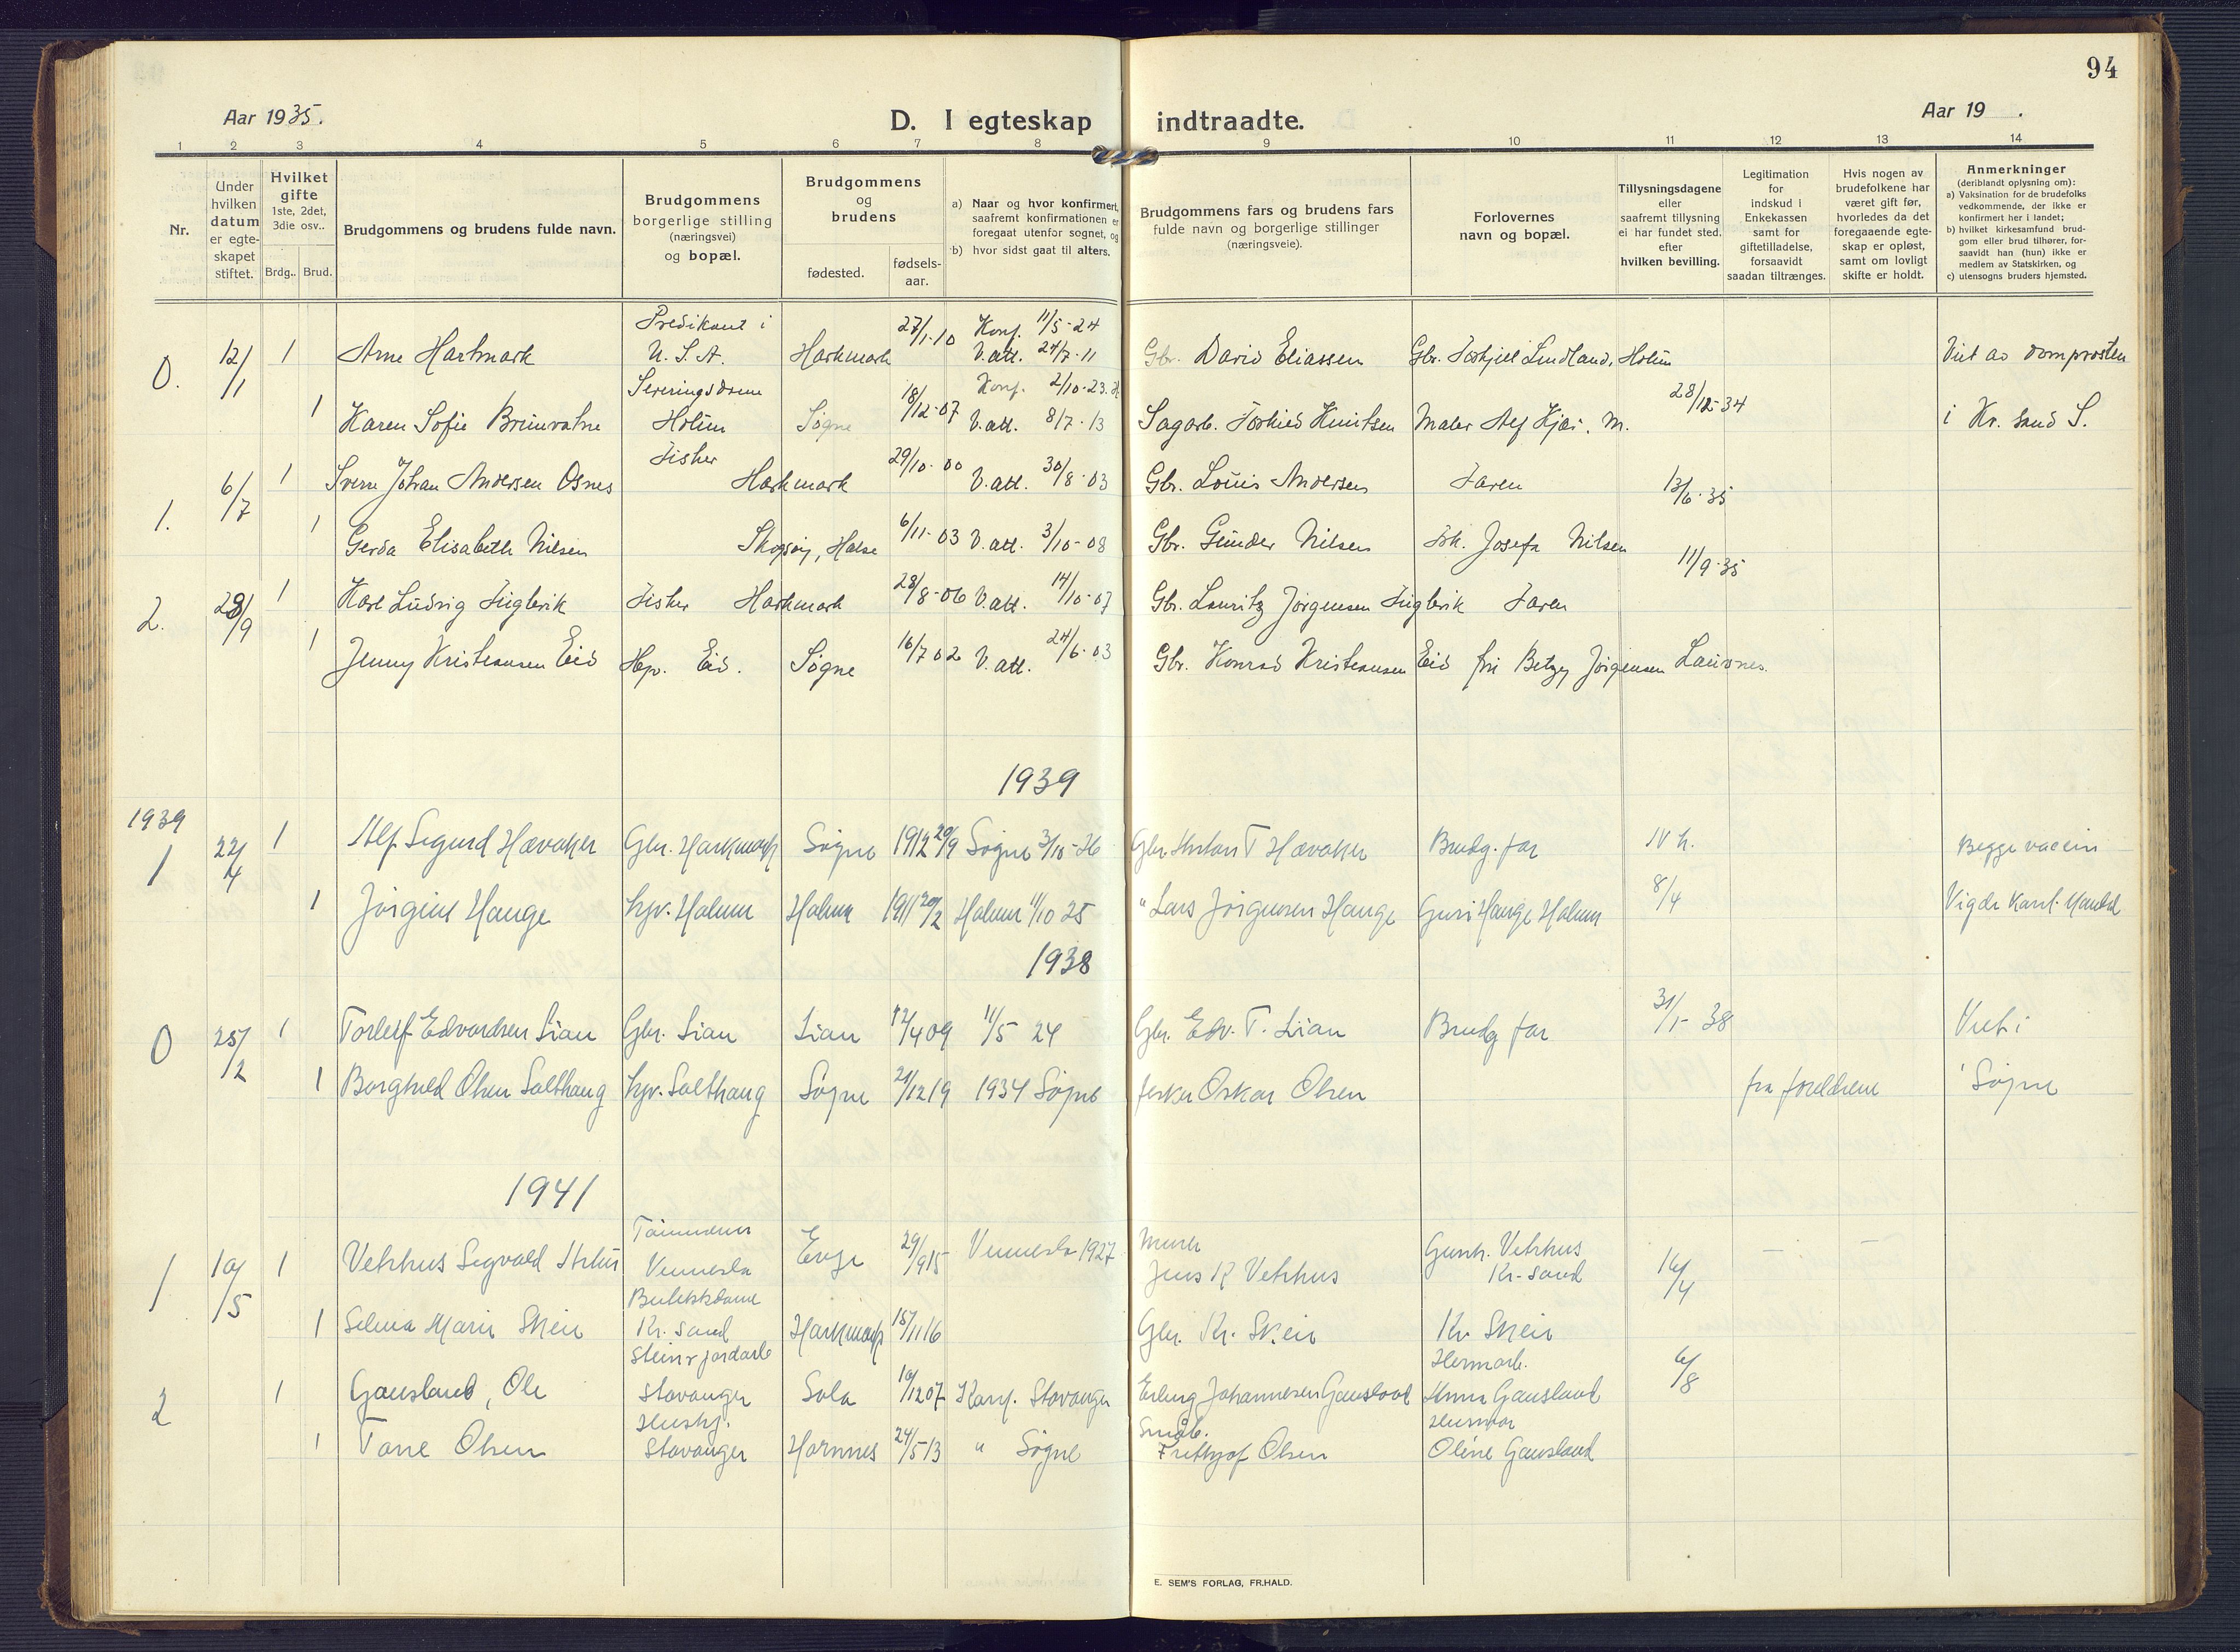 94
Aar 1935.
D. I egteskap indtraadte.
Aar 19 .
1 2 3 4 5 6 7 8 9 10 11 12 13 14
Nr.
Under
hvilken
datum
er egte-
skapet
stiftet.
Hvilket
gifte
1ste, 2det,
3die osv..
Brdg.. Brud.
Brudgommens og brudens fulde navn.
Brudgommens
borgerlige stilling
(næringsvei)
og bopæl.
Brudgommens
og
brudens
fødested.
fødsels-
aar.
a) Naar og hvor konfirmert,
saafremt konfirmationen er
foregaat utenfor sognet, og
b) hvor sidst gaat til alters.
Brudgommens fars og brudens fars
fulde navn og borgerlige stillinger
(næringsveie).
Forlovernes
navn og bopæl.
Tillysningsdagene
eller
saafremt tillysning
ei har fundet sted.
efter
hvilken bevilling.
Legitimation
for
indskud i
Enkekassen
samt for
giftetilladelse,
forsaavidt
saadan tiltrænges.
Hvis nogen av
brudefolkene har
været gift før,
hvorledes da det
foregaaende egte-
skap er opløst,
samt om lovligt
skifte er holdt.
Anmerkninger
(deriblandt oplysning om):
a) Vaksination for de brudefolks
vedkommende, der ikke er
konfirmert her i landet;
b) hvilket kirkesamfund brud-
gom eller brud tilhører, for-
saavidt han (hun) ikke er
medlem av Statskirken, og
c) utensogns bruders hjemsted.
Predikant i
0. 12/1 1 Arne Hartmark U. S. A. Harkmark 27/1-10 Konf. 11/5-24 V.att. 24/7-11 Gbr. David Eliassen Gbr. Torkjell Lindland, Holum Viet av domprosten
1 Karen Sofie Brunvatne Holum Søgne 18/12-07 Konf. 2/10-23. V.att. 8/7-13 Sagarb. Knutsen Maler Alf Kjær. M. 28/12-34 i Kr. sand S.
Fisker
1. 6/7 1 Johan Andersen Osnes Harkmark 29/10-00 V.att. 30/8-03 Gbr. Louis Andersen Faren 13/6-35
1 Gerda Elisabeth Nilsen Skogsøy, Halse 6/11-03 V.att. 3/10-08 Gbr. Gunder Nilsen Josefa Nilsen
2. 28/9 1 Karl Ludvig Fuglevik Fisker Harkmark 28/8-06 V.att. 14/10-07 Gbr. Lauritz Jørgensen Fuglevik Faren 11/9-35
1 Jenny Kristiansen Eid Hp. Eid. Søgne 16/7 02 V.att. 24/6-03 Gbr. Konrad Kristiansen Eid fru Betzy Jørgensen Launes.
1939
1939
1 22/4 1 Alf Sigurd Hævaker Gbr. Harkmark Søgne 1912 29/9 Søgne 3/10-26 Gbr. T Hævaker Brudg. far N h. Begge vaccin
1 Jørgine Hauge hpv. Holum Holum 1911 20/2 Holum 1/10 25 " Lars Jørgensen Hauge Guri Hauge Holum 8/4
1938
0 25/2 1 Torleif Edvardsen Lian Gbr. Lian Lian 12/4 09 11/5 24 Gbr. Edv. T. Lian Brudg far 31/1-38 Viet i
1 Borghild Olsen Salthaug hpv. Salthaug Søgne 21/12 19 1934 Søgne fisker Oskar Olsen fra foreldrene Søgne
1941
1 10/5 1 Vehhus Sigvald Vennesla Evje 29/9 15 Vennesla 1927 Murer Jens K Vehhus Gunh. Vehhus Kr-sand 16/4
Butikkdame
1 Selma Marie Skeie Kr. sand Harkmark 15/11 16 Gbr. Kr. Skeie Kr. Skeie
2 1 Gausland, Ole Stavanger Sola 10/12 07 Konf. Stavanger Erling Johannesen Gausland Gausland 6/8
1 Tone Olsen Stavanger Hornnes 24/5 13 " Søgne Småb. Frithjof Olsen Oline Gausland
E. SEM'S FORLAG, FR.HALD.